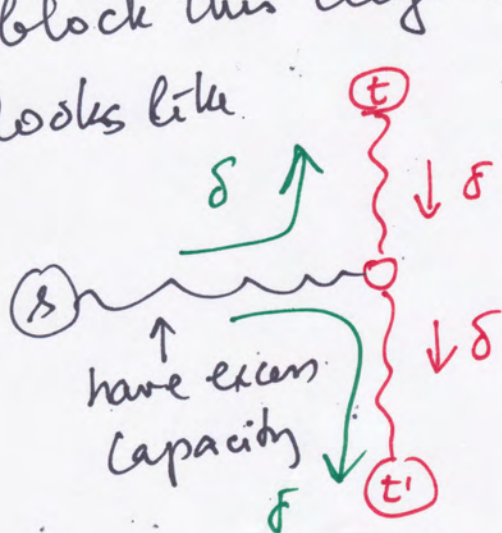 block this
looks like
t
δ
δ
s
have excess
capacity
δ
δ
t'